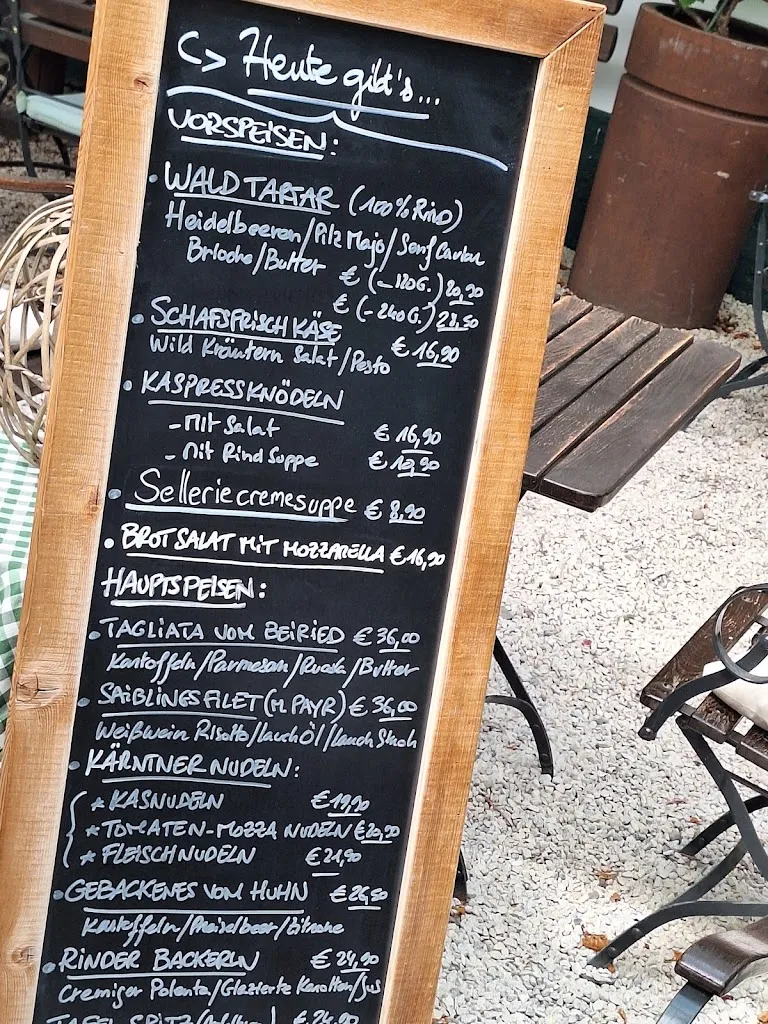 Heute gibt's...
VORSPEISEN:
• WALDTARTAR (100% RIND)
Heidelbeeren/Pilz Majo/Senf Caviar
Brioche/Butter € (-120G.) 20,90
€ (-240G.) 28,50
• SCHAFSFRISCHKÄSE € 16,90
Wild Kräutern Salat/Pesto
• KASPRESSKNÖDELN
- Mit Salat € 16,90
- Mit Rind Suppe € 12,90
• Selleriecremesuppe € 8,90
• BROTSALAT MIT MOZZARELLA € 16,90
HAUPTSPEISEN:
• TAGLIATA VOM BEIRIED € 36,00
Kartoffeln/Parmesan/Rucola/Butter
• SAIBLINGSFILET (M. PAYR) € 36,00
Weißwein Risotto/Lauch Öl/Lauch Stroh
• KÄRNTNER NUDELN:
* KASNUDELN € 19,90
* TOMATEN-MOZZA NUDELN € 20,90
* FLEISCHNUDELN € 21,90
• GEBACKENES VOM HUHN € 26,50
Kartoffeln/Preiselbeer/Zitrone
• RINDER BACKERLN € 29,90
Cremiger Polenta/Glazierte Karotten/Jus
TAFELSPITZ € 24,90